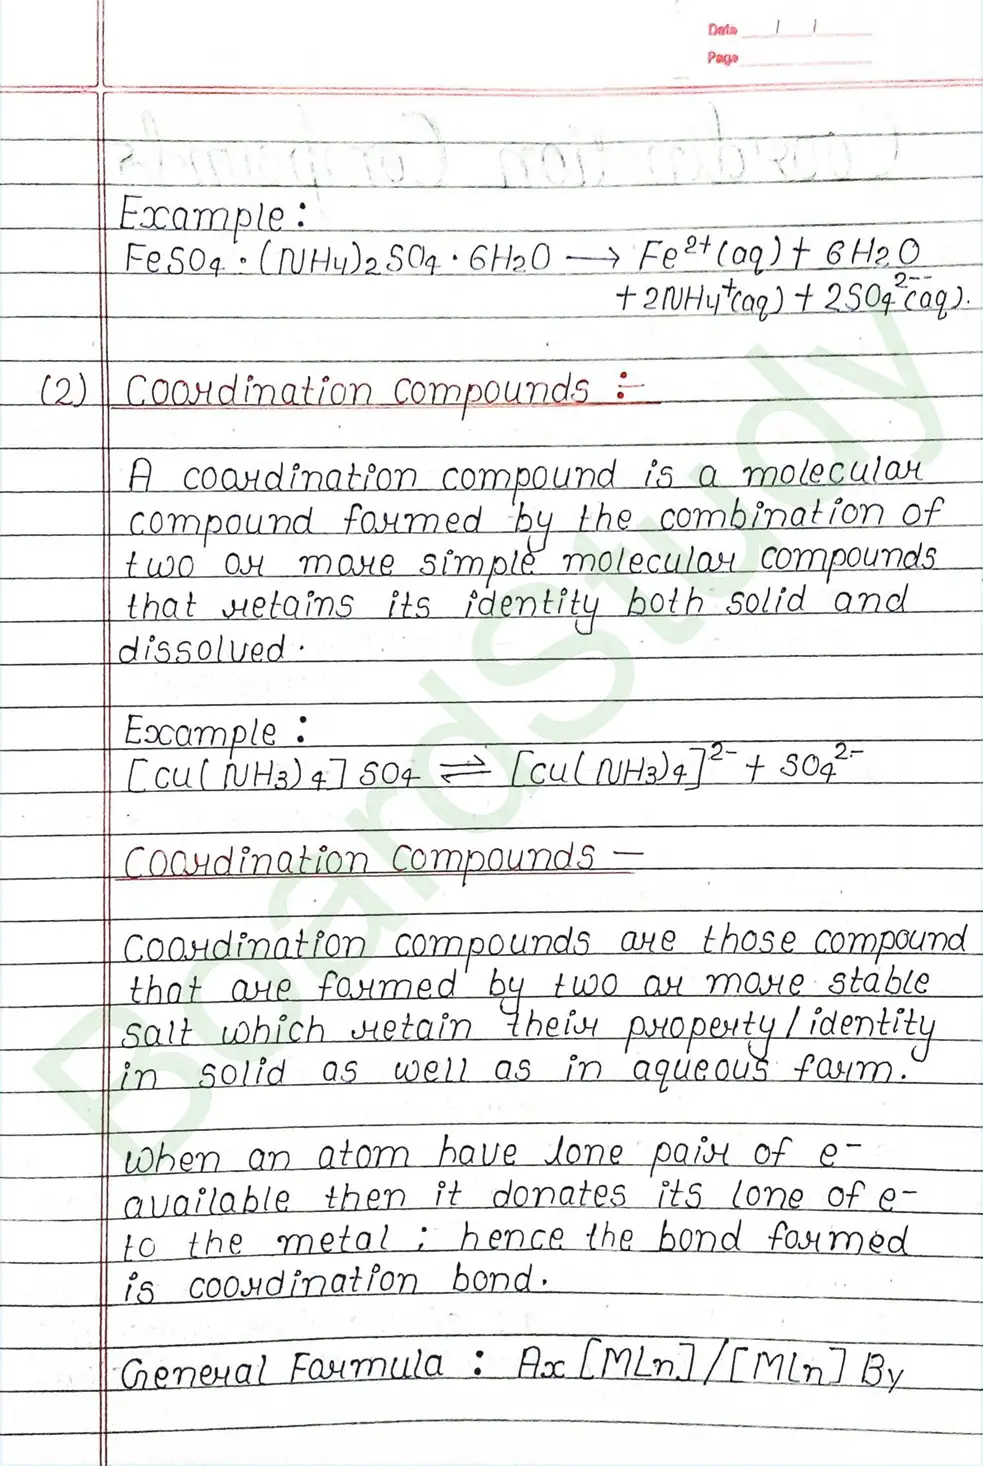 Date / /
Page
Coordination Compounds
Example :
FeSO4 · (NH4)2SO4 · 6H2O → Fe²⁺(aq) + 6H2O
+ 2NH4⁺(aq) + 2SO4²⁻⁻(aq).
(2) Coordination compounds :-
A coordination compound is a molecular
compound formed by the combination of
two or more simple molecular compounds
that retains its identity both solid and
dissolved.
Example :
[cu(NH3)4] SO4 ⇌ [cu(NH3)4]²⁻ + SO4²⁻
Coordination Compounds –
Coordination compounds are those compound
that are formed by two or more stable
salt which retain their property/identity
in solid as well as in aqueous form.
When an atom have lone pair of e-
available then it donates its lone of e-
to the metal ; hence the bond formed
is coordination bond.
General Formula : Ax [MLn]/[MLn] By
BoardStudy